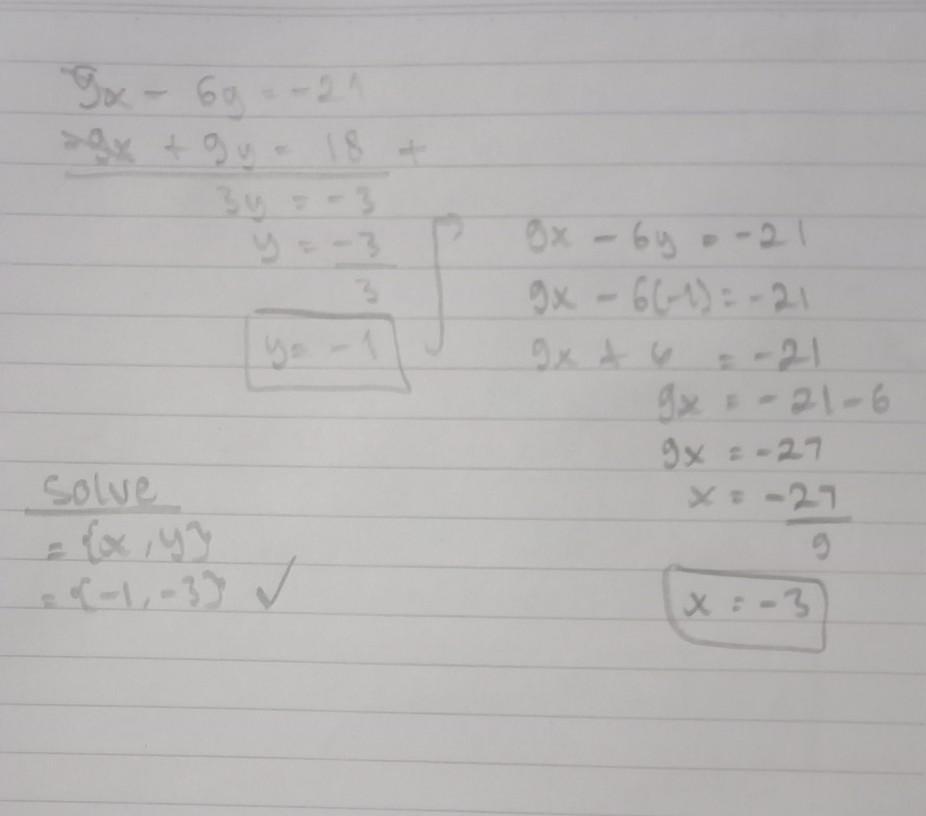 9x - 6y = -21
-9x + 9y = 18 +
3y = -3
y = -3/3
y = -1
9x - 6y = -21
9x - 6(-1) = -21
9x + 6 = -21
9x = -21 - 6
9x = -27
x = -27/9
x = -3
Solve
= {x, y}
= {-1, -3} ✓